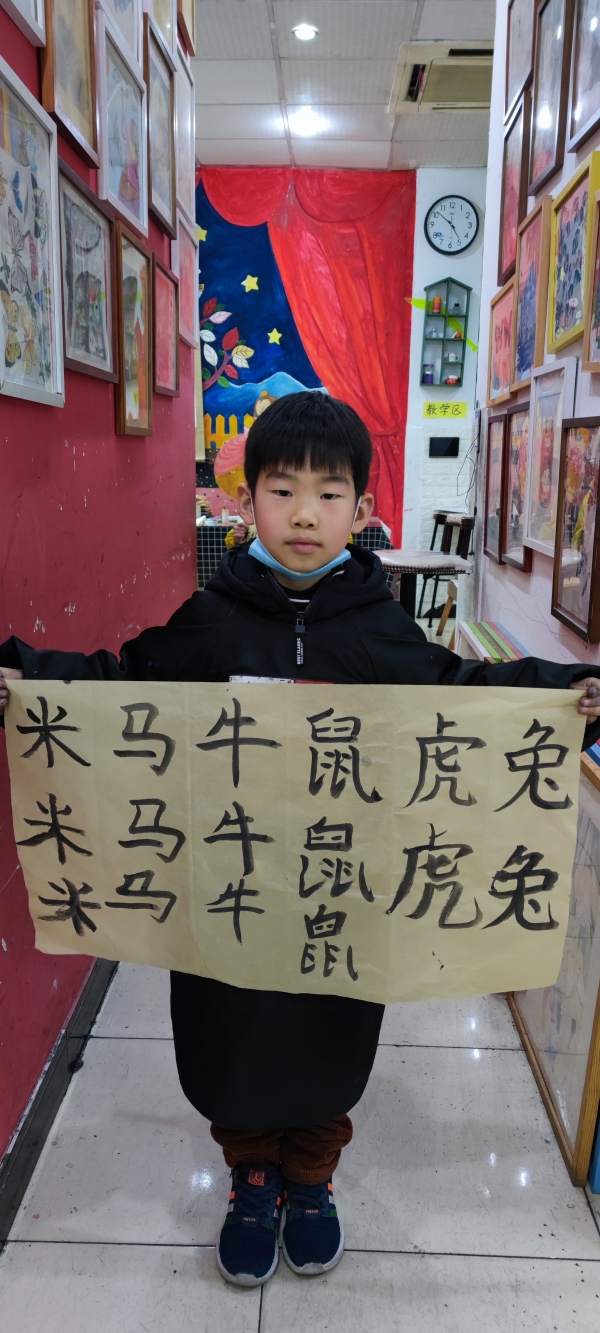 教学区
米 马 牛 鼠 虎 兔
米 马 牛 鼠 虎 兔
米 马 牛 鼠